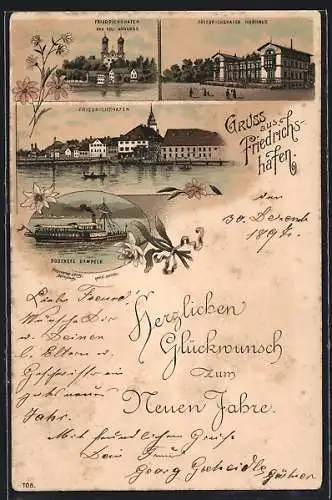 FRIEDRICHSHAFEN
FRIEDRICHSHAFEN KURHAUS
FRIEDRICHSHAFEN
Gruss aus
Friedrichs-
hafen.
den
30. Dezemb
BODENSEE DAMPFER
Liebe Freund!
Wünsche Dir
u. Deinen
l. Eltern u.
Geschwistern ein
gutes neues
Jahr.
Herzlichen
Glückwunsch
zum
Neuen Jahre.
Mit freundlichem Gruss
Dein Freund
Georg
708.